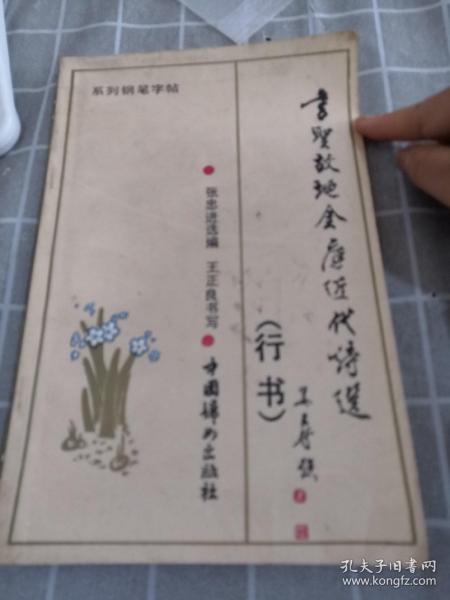 系列钢笔字帖
书圣故地金庭近代诗选
（行书）
张忠进选编 王正良书写
中国妇女出版社
孔夫子旧书网
www.kongfz.com